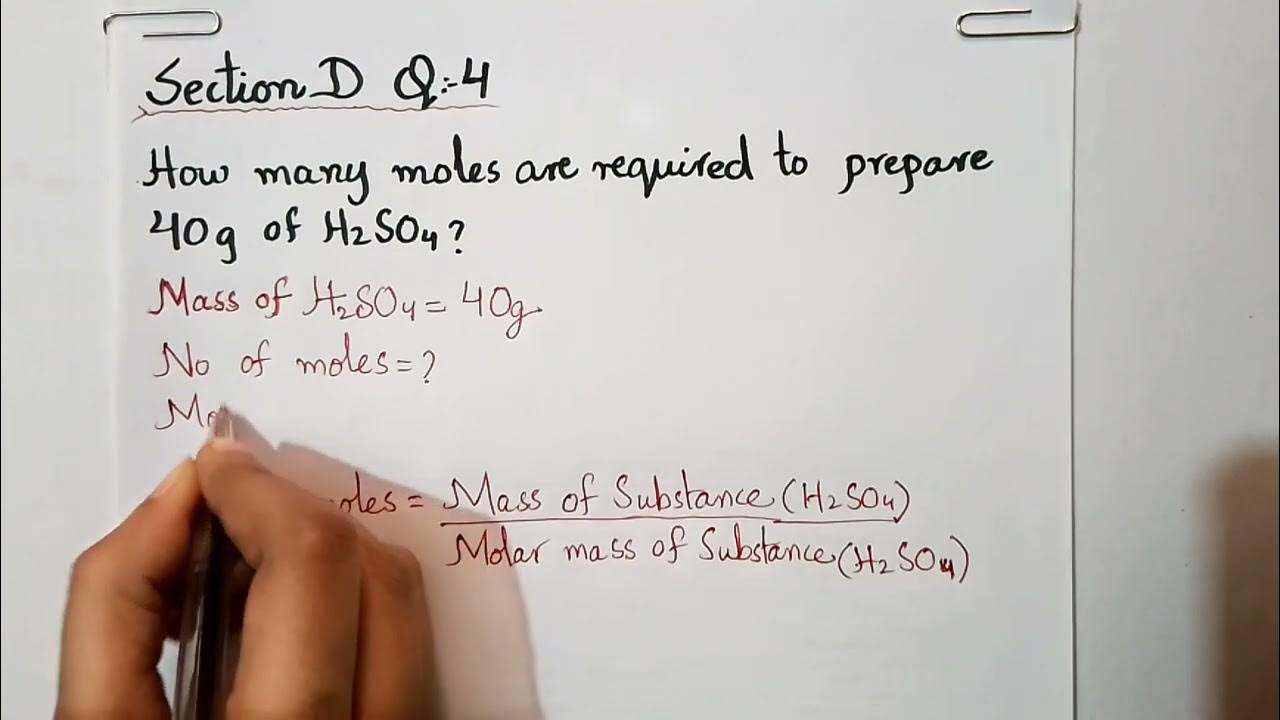 Section D Q:-4
How many moles are required to prepare
40g of H2SO4?
Mass of H2SO4 = 40g
No of moles = ?
Mo
moles = Mass of Substance (H2SO4)
Molar mass of Substance (H2SO4)